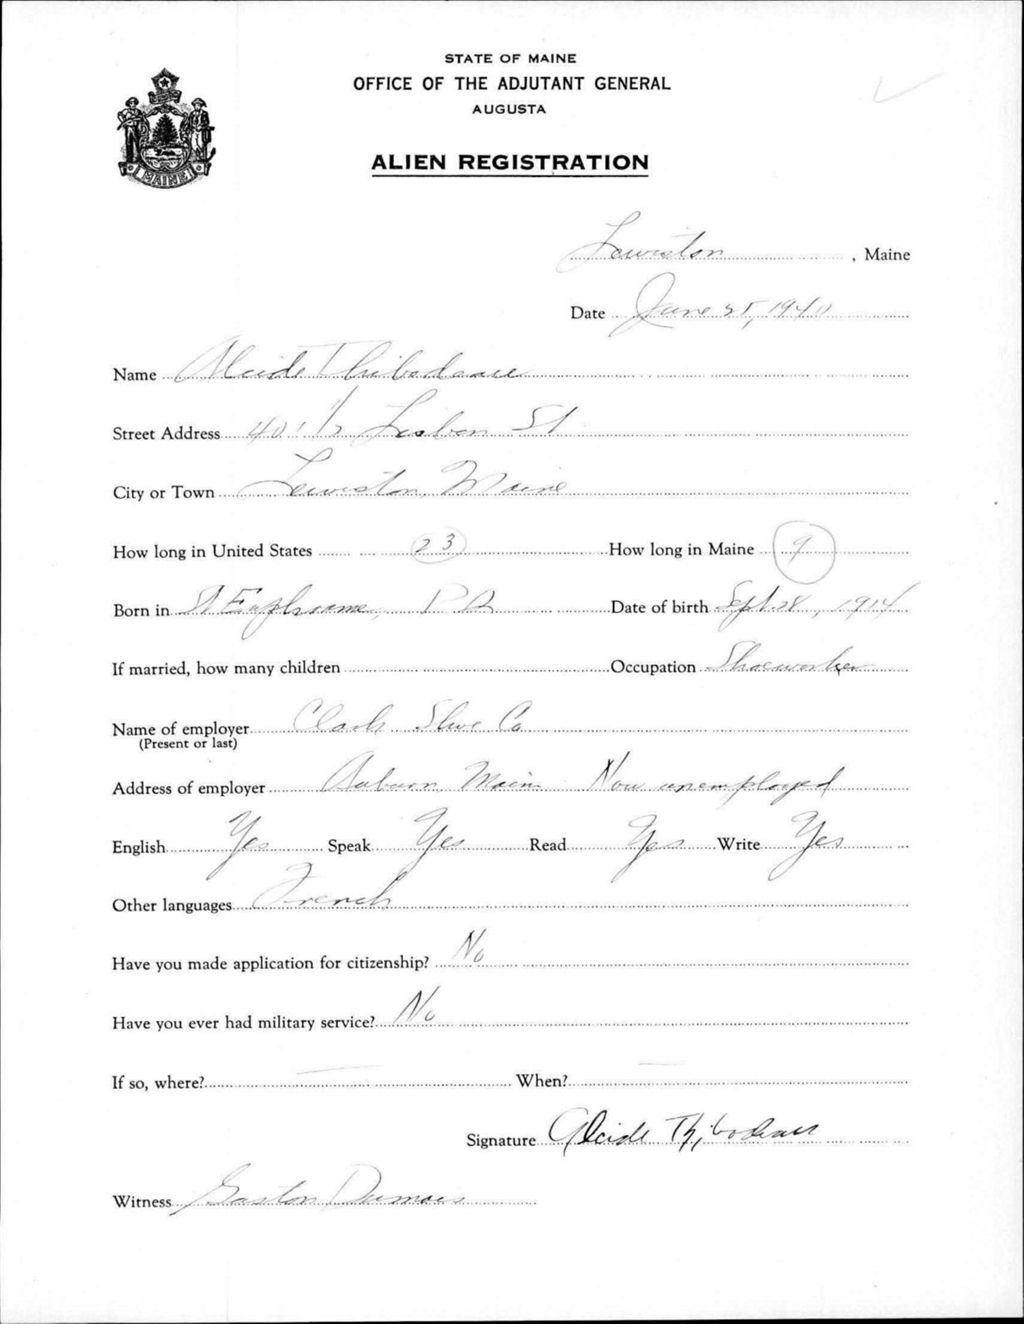 STATE OF MAINE
OFFICE OF THE ADJUTANT GENERAL
AUGUSTA
MAINE
ALIEN REGISTRATION
Lewiston, Maine
Date June 25, 1940
Name Alcide Thibodeau
Street Address 401 1/2 Lisbon St
City or Town Lewiston, Maine
How long in United States 23 How long in Maine 9
Born in St Ephraime, P Q Date of birth Sept 28, 1914
If married, how many children Occupation Shoeworker
Name of employer Clark Shoe Co
(Present or last)
Address of employer Auburn, Maine Now unemployed
English Yes Speak Yes Read Yes Write Yes
Other languages French
Have you made application for citizenship? No
Have you ever had military service? No
If so, where? — When? —
Signature Alcide Thibodeau
Witness Gaston Dumais